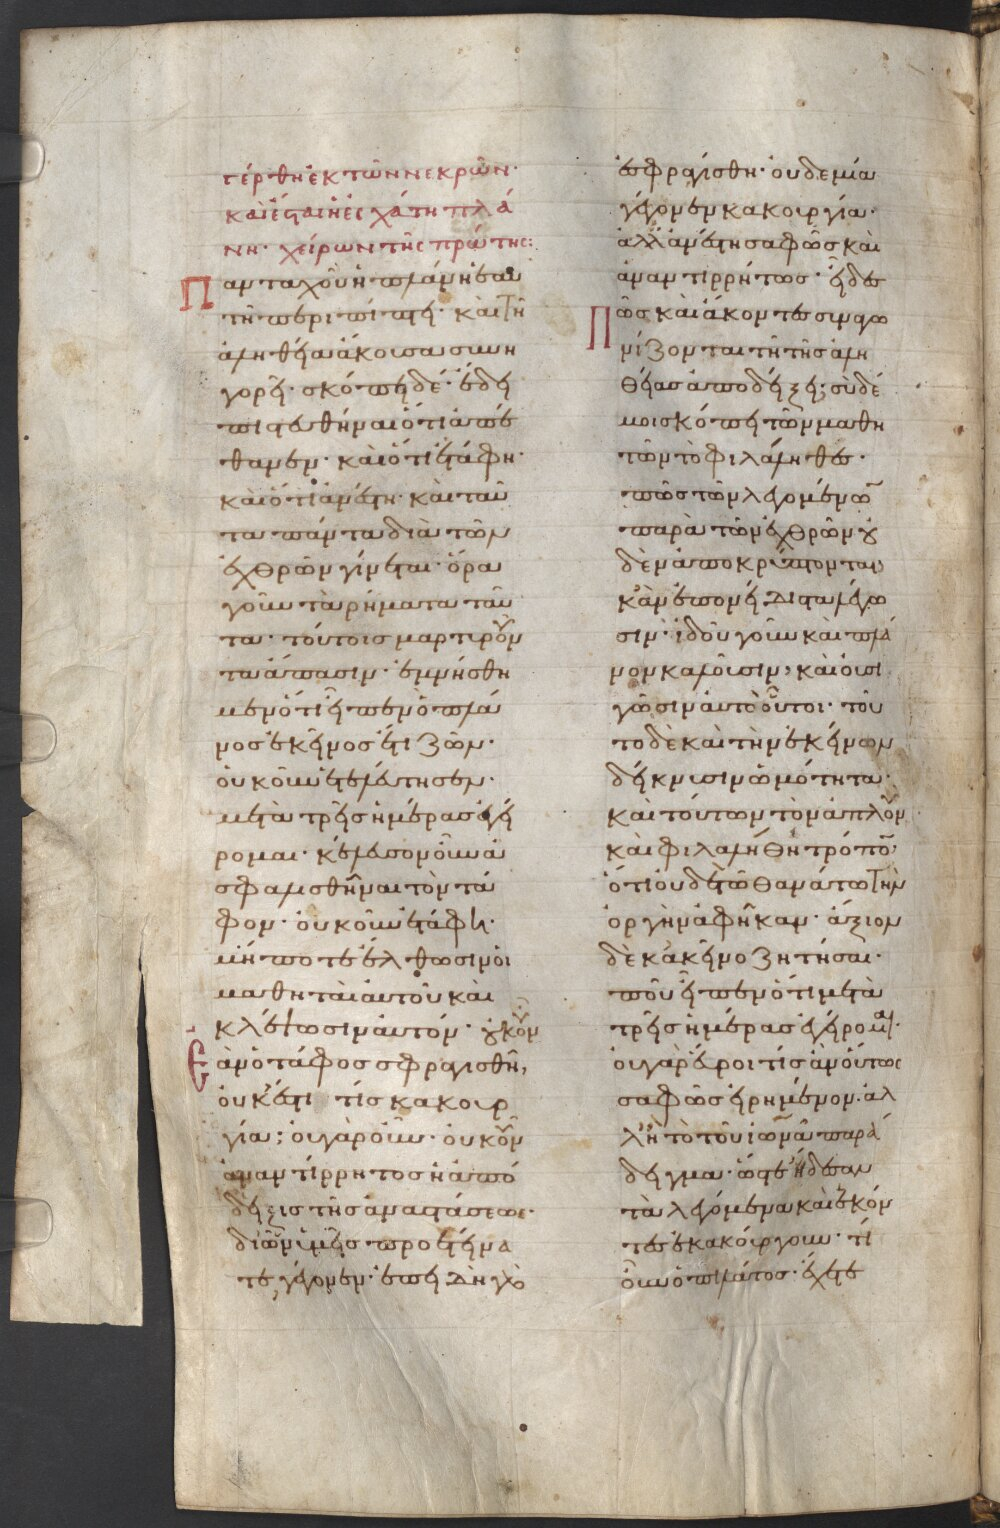 τέρθη ἐκ τῶν νεκρῶν·
καὶ ἔσται ἡ ἐσχάτη πλά
νη· χείρων τῆς πρώτης:
Πανταχοῦ ἡ πλάνη ἑαυ
τῆ περιπίπτει· καὶ τῆ
ἀληθεία ἄκουσα συνη
γορεῖ· σκόπει δέ· ἔδει
πιστευθῆναι ὅτι ἀπέ
θανεν· καὶ ὅτι ἐτάφη·
καὶ ὅτι ἀνέστη· καὶ ταῦ
τα πάντα διὰ τῶν
ἐχθρῶν γίνεται· ὅρα
γοῦν τὰ ρήματα ταῦ
τα· τούτοις μαρτυροῦν
τα ἅπασιν· ἐμνήσθη
μεν ὅτι εἶπεν ὁ πλά
νος ἐκεῖνος ἔτι ζῶν·
οὐκοῦν ἐτελεύτησεν·
μετὰ τρεῖς ἡμέρας ἐγεί
ρομαι· κέλευσον οὖν ἀ
σφαλισθῆναι τὸν τά
φον· οὐκοῦν ἐτάφη·
μή ποτε ἐλθωσιν οἱ
μαθηταὶ αὐτοῦ καὶ
κλέψωσιν αὐτόν· οὐκοῦν
ἐὰν ὁ τάφος σφραγισθῆ,
οὐκ ἔσται τίς κακουρ
γία; οὐ γὰρ οὖν· οὐκοῦν
ἀναντίρρητος ἡ ἀπό
δειξις τῆς ἀναστάσεως·
δι ὧν ὑμεῖς προετείνα
τε γέγονεν· ἐπειδὴ γὰρ
ἐσφραγίσθη· οὐδεμία
γέγονεν κακουργία·
ἀλλ ἀνέστη σαφῶς καὶ
ἀναντιρρήτως· εἶδες
Πῶς καὶ ἄκοντες συναγω
νίζονται τῆ τῆς ἀλη
θείας ἀποδείξει; σὺ δέ
μοι σκόπει τῶν μαθη
τῶν τὸ φιλάληθες·
πῶς τῶν λεγομένων
παρὰ τῶν ἐχθρῶν οὐ
δὲν ἀποκρύπτονται,
κἂν ἐπονείδιστα λέγω
σιν· ἰδοῦ γοῦν καὶ πλά
νον καλοῦσιν, καὶ οὐ σι
γῶσιν αὐτὸ οὗτοι· τοῦ
το δε καὶ τὴν ἐκείνων
δείκνυσιν ὠμότητα·
καὶ τούτων τὸν ἁπλοῦν
καὶ φιλαλήθη τρόπον,
ὅτι οὐδὲ τῶ θανάτω τὴν
ὀργὴν ἀφῆκαν· ἄξιον
δὲ κἀκεῖνο ζητῆσαι·
ποῦ εἶπεν ὅτι μετὰ
τρεῖς ἡμέρας ἐγείρομαι·
οὐ γὰρ εὕροι τίς ἂν οὕτως
σαφῶς εἰρημένον· ἀλ
λ ἢ τὸ τοῦ ἰωνᾶ παρά
δειγμα· ὥστε ἤδεσαν
τὰ λεγόμενα καὶ ἑκόν
τες ἐκακούργουν· τί
οὖν ὁ πιλάτος· ἔχετε